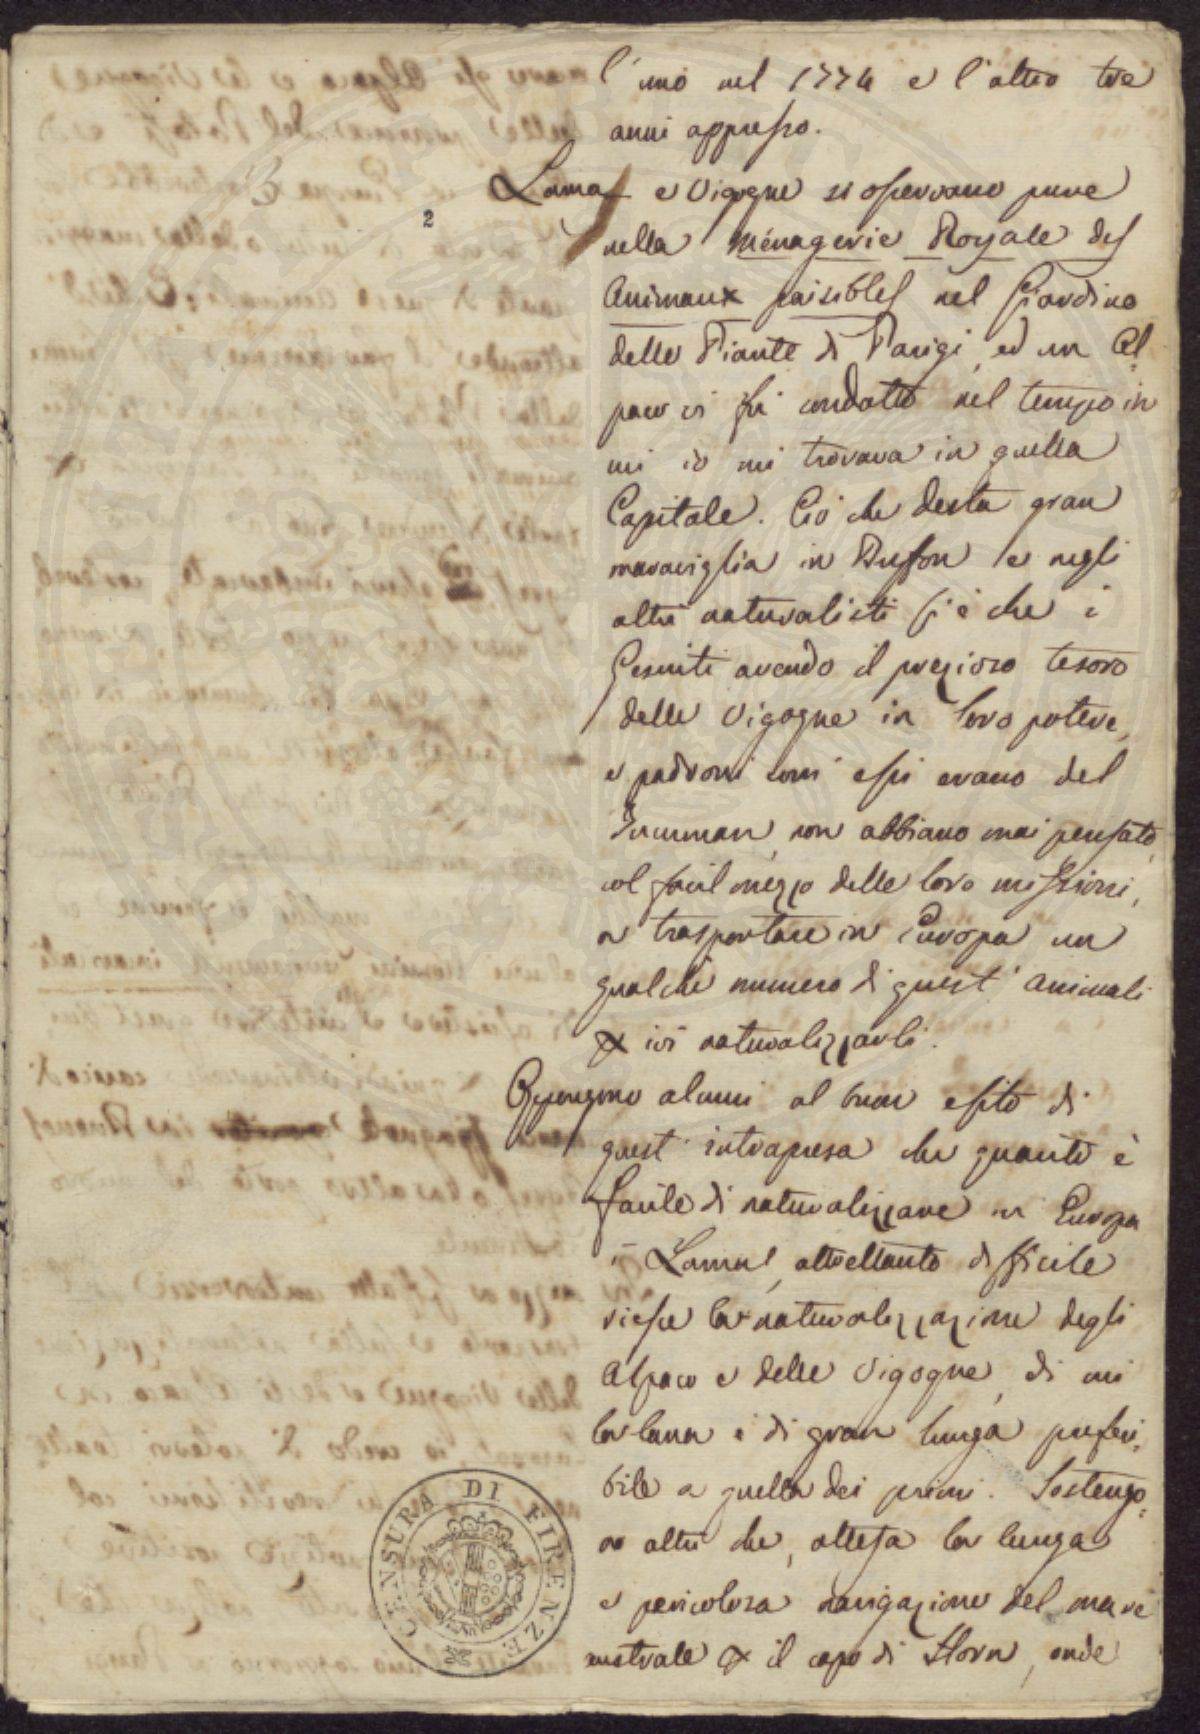 l'uno nel 1774 e l'altro tre
anni appresso.
Lama e Vigogne si osservano pure
2
nella Ménagerie Royale des
Animaux paisibles nel Giardino
delle Piante di Parigi, ed un Al-
paco vi fu condotto nel tempo in
cui io mi trovava in quella
Capitale. Ciò che desta gran
maraviglia in Buffon e negli
altri naturalisti si è che i
Gesuiti avendo il prezioso tesoro
delle Vigogne in loro potere,
e padroni com' essi erano del
Tucuman, non abbiano mai pensato,
col facil mezzo delle loro missioni,
a trasportare in Europa un
qualche numero di quest' animali
ivi naturalizzarli.
Oppongono alcuni al buon esito di
quest' intrapresa che quanto è
facile di naturalizzare in Europa
i Lamas, altrettanto difficile
riesce la naturalizzazione degli
Alpaco e delle Vigogne, di cui
la lana è di gran lunga preferi-
bile a quella dei primi. Sostengo-
no altri che, attesa la lunga
e pericolosa navigazione del mare
australe il capo di Horn, onde
CENSURA DI FIRENZE